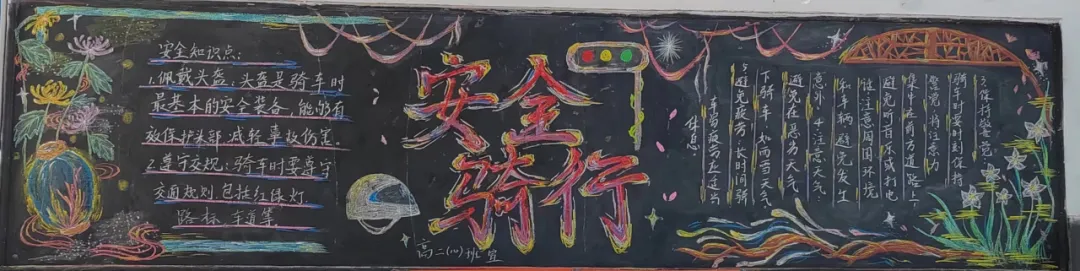 安全知识点:
1.佩戴头盔:头盔是骑车时
最基本的安全装备,能够有
效保护头部,减轻事故伤害.
2.遵守交规:骑车时要遵守
交通规则,包括红绿灯.
路标、车道等
安全
骑行
高二(四)班宣
3.保持警觉:
骑车时要时刻保持
警觉,将注意力
集中在前方道路上,
避免听音乐或打电
话,注意周围环境
和车辆,避免发生
意外.4.注意天气:
避免在恶劣天气
下骑车,如雨雪天气
5.避免疲劳:长时间骑
车易疲劳,应适当
休息.